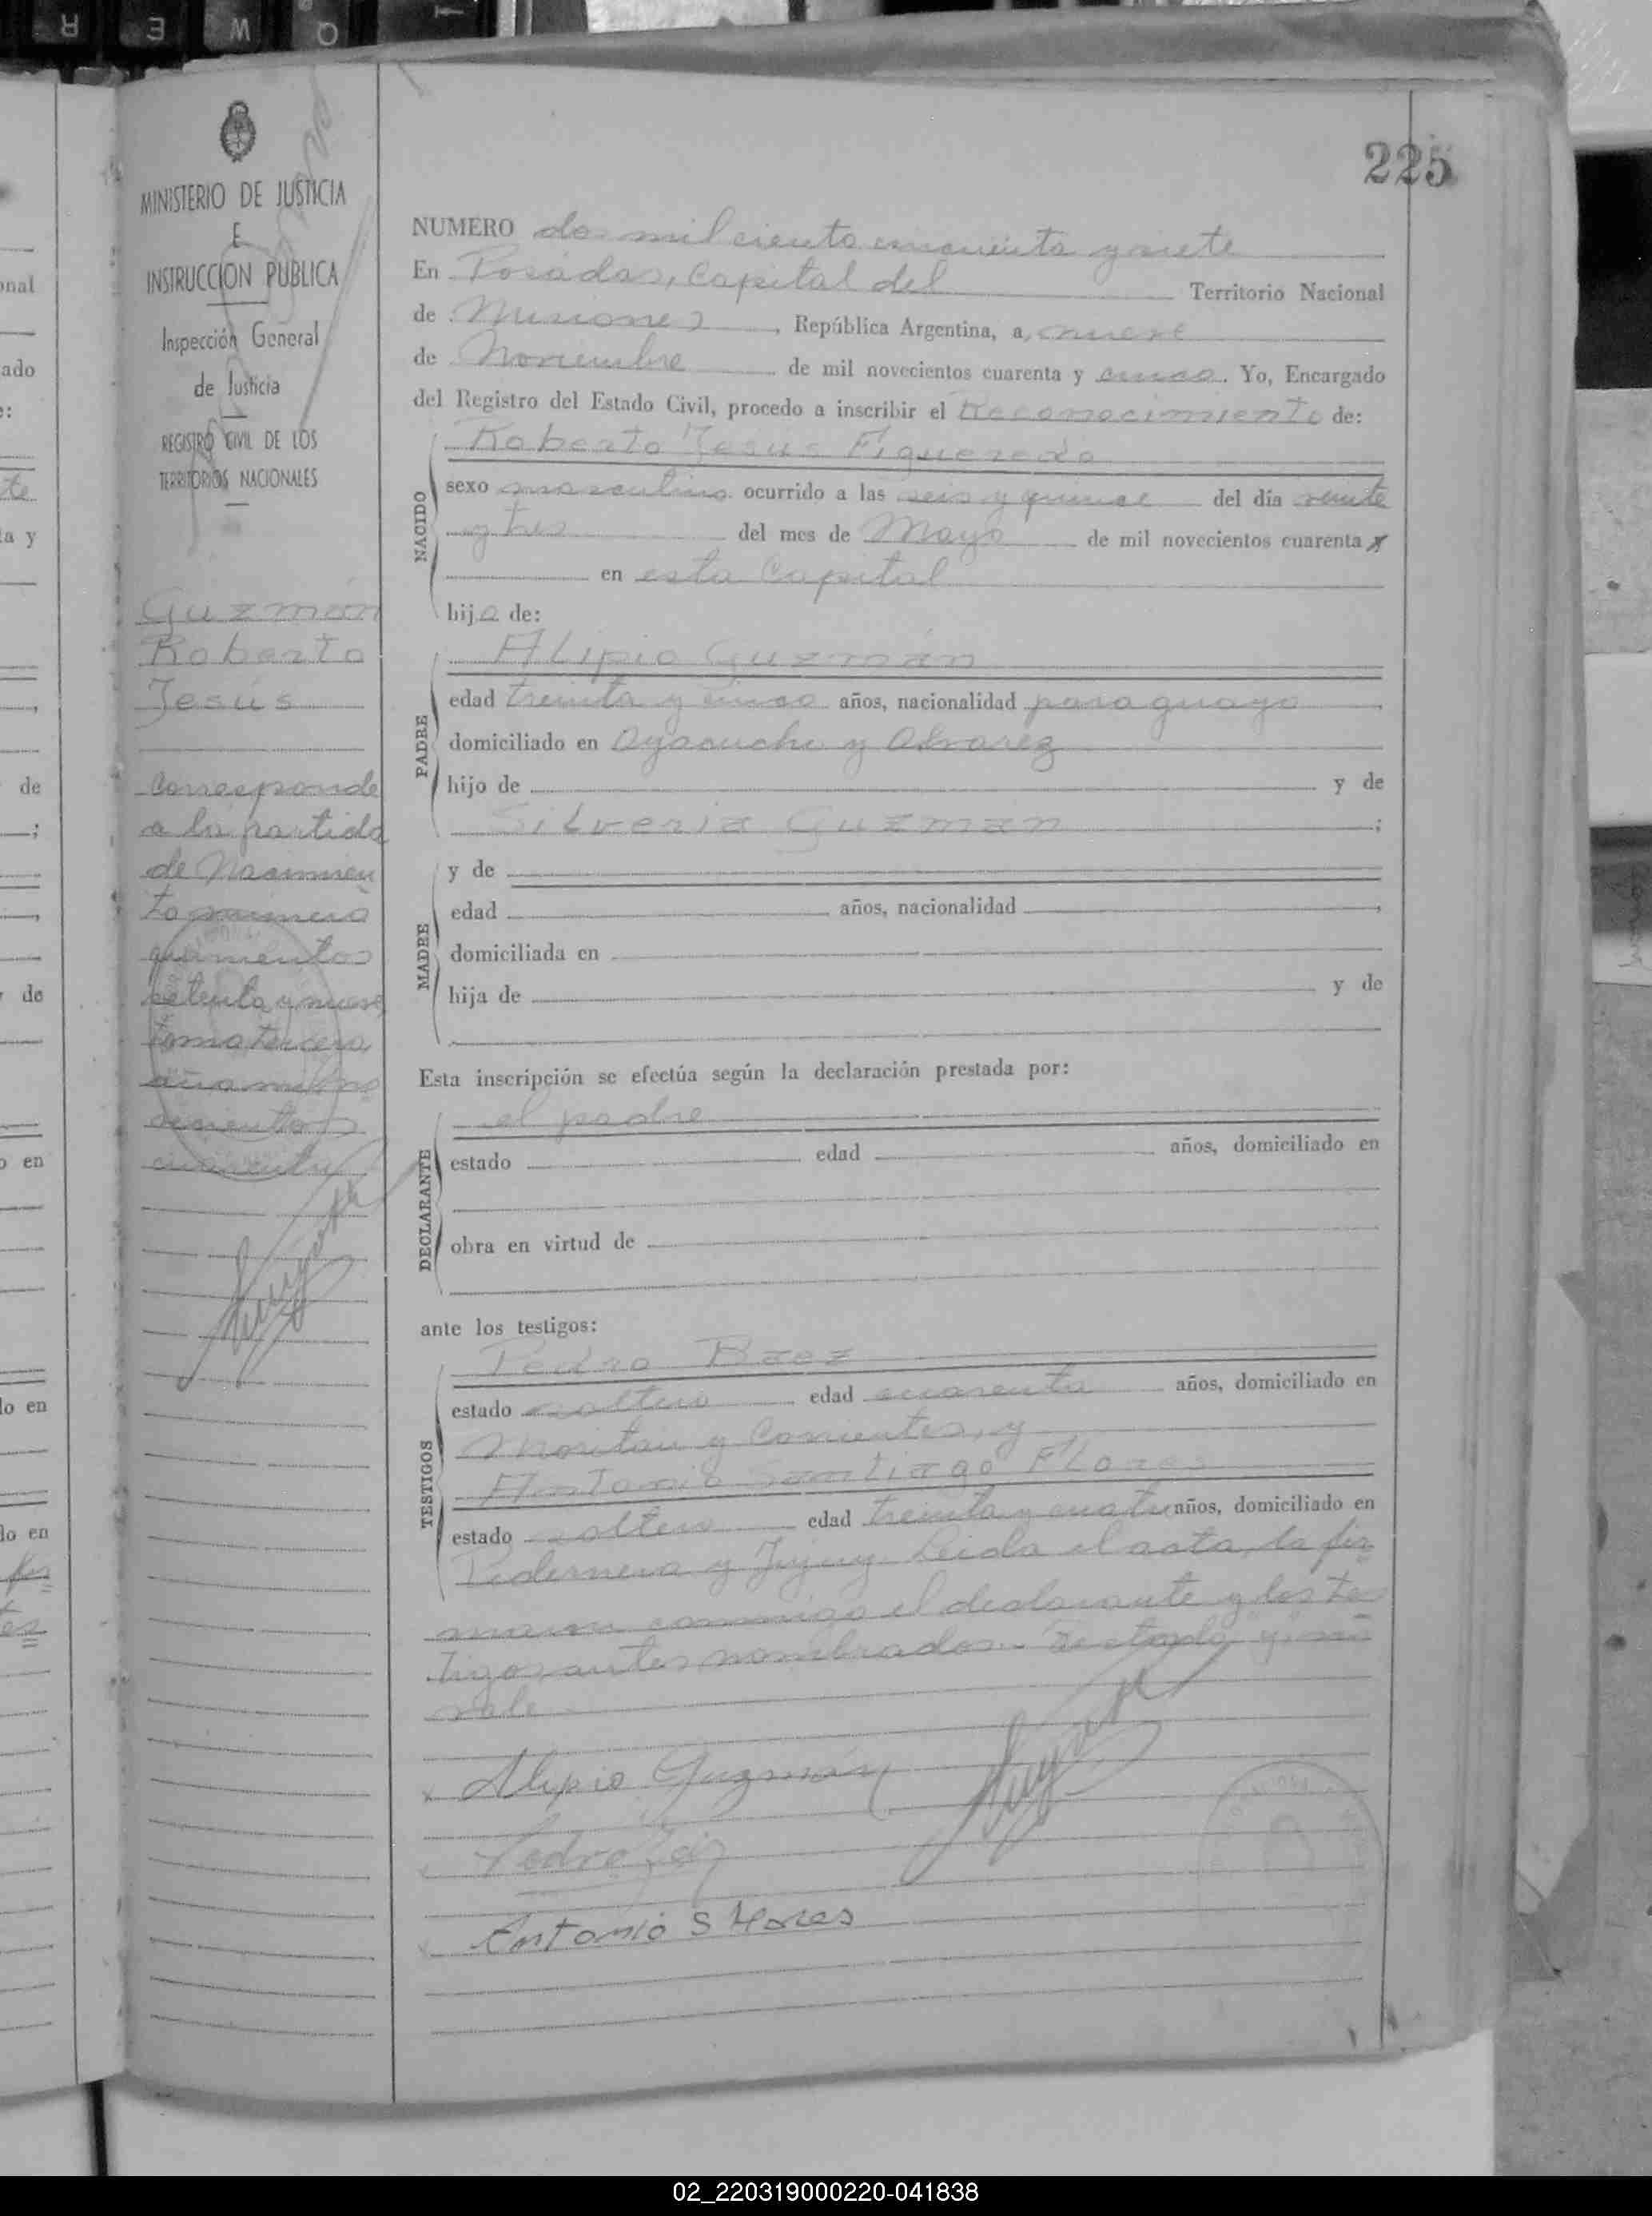 225
MINISTERIO DE JUSTICIA
E
INSTRUCCION PUBLICA
Inspección General
de Justicia
REGISTRO CIVIL DE LOS
TERRITORIOS NACIONALES
Guzmán
Roberto
Jesús
Corresponde
a la partida
de Nacimien
to número
quinientos
setenta y nueve,
tomo tercero
año mil no
vecientos
cuarenta
NUMERO dos mil ciento cincuenta y siete
En Posadas, Capital del Territorio Nacional
de Misiones, República Argentina, a, nueve
de Noviembre de mil novecientos cuarenta y cinco. Yo, Encargado
del Registro del Estado Civil, procedo a inscribir el Reconocimiento de:
NACIDO
Roberto Jesús Figueredo
sexo masculino ocurrido a las seis y quince del día veinte
y tres del mes de Mayo de mil novecientos cuarenta y
en esta Capital
hijo de:
PADRE
Alipio Guzmán
edad treinta y cinco años, nacionalidad paraguayo
domiciliado en Ayacucho y Alvarez
hijo de y de
Silveria Guzman ;
MADRE
y de
edad años, nacionalidad ,
domiciliada en
hija de y de
Esta inscripción se efectúa según la declaración prestada por:
DECLARANTE
el padre
estado edad años, domiciliado en
obra en virtud de
ante los testigos:
TESTIGOS
Pedro Baez
estado soltero edad cuarenta años, domiciliado en
y Corrientes, y
Antonio Santiago Flores
estado soltero edad treinta y cuatro años, domiciliado en
Pedernera y Jujuy. Leida el acta, la fir
maron conmigo el declarante y los tes
tigos antes nombrados. Testado y: no
vale.
x Alipio Guzmán
x Pedro
x Antonio S Flores
02_220319000220-041838